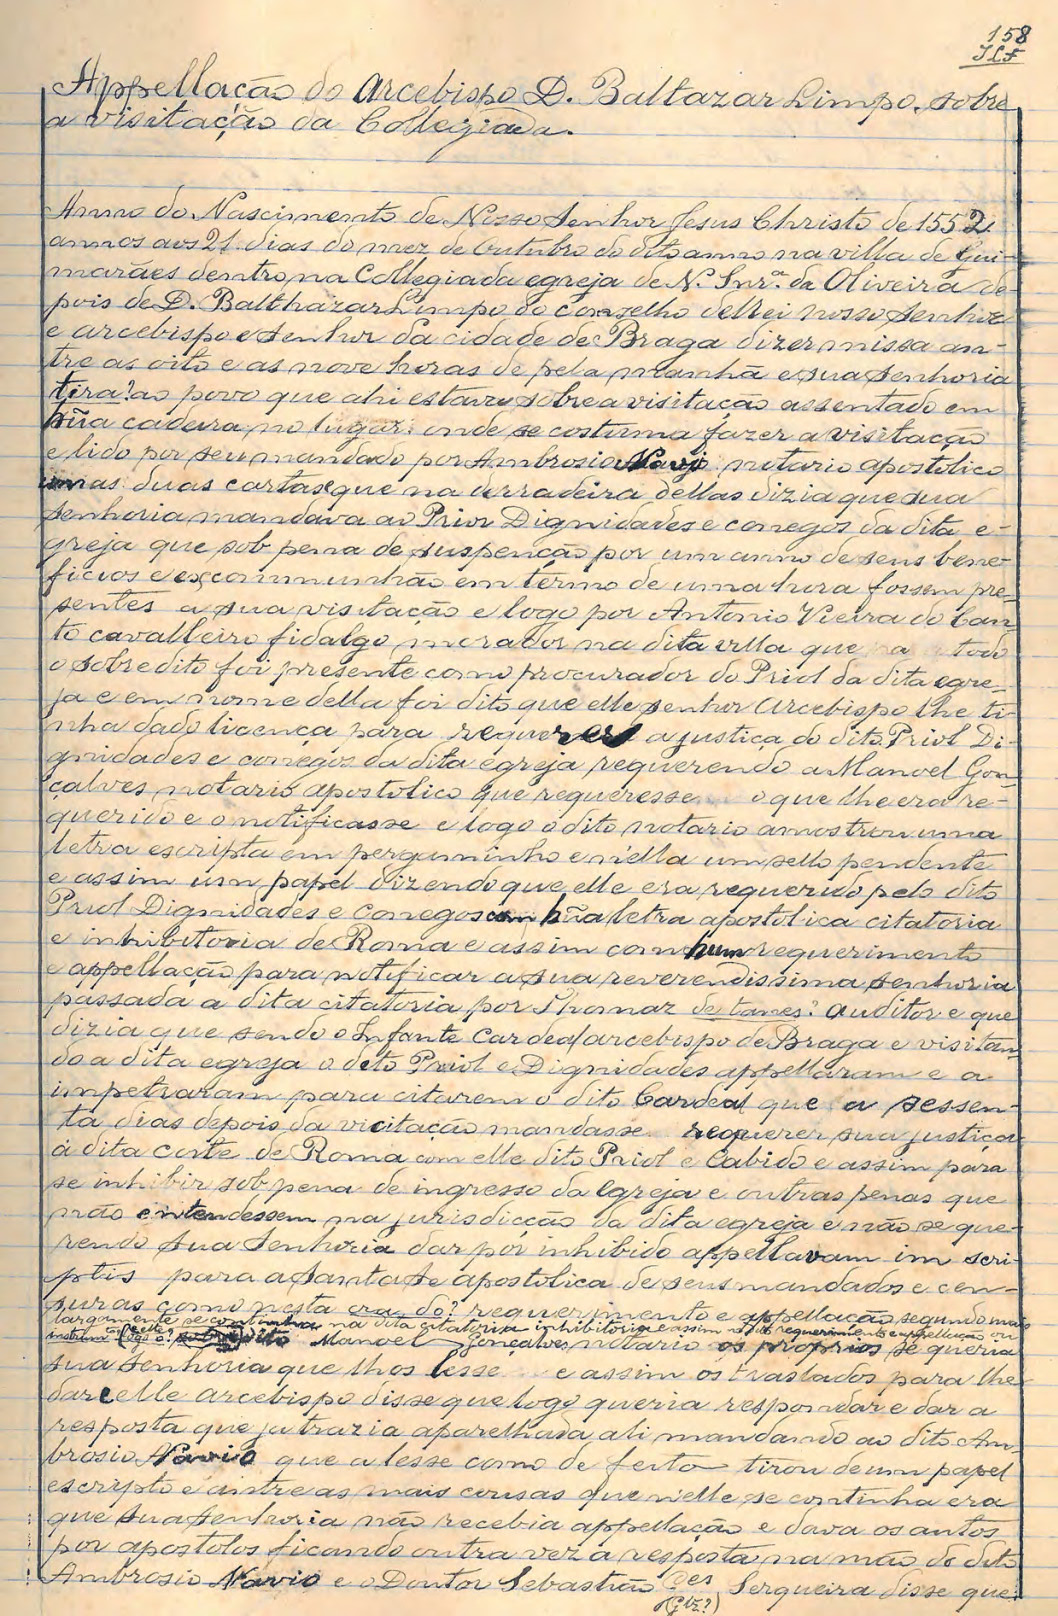 158
JLF
Appellação do Arcebispo D. Baltazar Limpo, sobre
a visitação da Collegiada.
Anno do Nascimento de Nosso Senhor Jesus Christo de 1552
annos aos 21 dias do mez de Outubro do dito anno na villa de Gui-
marães dentro na Collegiada egreja de N. Snr.ª da Oliveira de-
pois de D. Balthazar Limpo do conselho delRei nosso Senhor
e arcebispo e Senhor da cidade de Braga dizer missa an-
tre as oito e as nove horas de pela manhã e sua Senhoria
tira? ao povo que ahi estava sobre a visitação assentado em
hũa cadeira no lugar onde se costuma fazer a visitação
e lido por seu mandado por Ambrosio Navio notario apostolico
umas duas cartas que na derradeira dellas dizia que sua
Senhoria mandava ao Prior Dignidades e conegos da dita e-
greja que sob pena de suspenção por um anno de seus bene-
ficios e excommunhão em termo de uma hora fossem pre-
sentes a sua visitação e logo por Antonio Vieira do Can-
to cavalleiro fidalgo morador na dita villa que a todo
o sobredito foi presente como procurador do Priol da dita egre-
ja e em nome della foi dito que elle senhor Arcebispo lhe ti-
nha dado licença para requerer a justiça do dito Priol Di-
gnidades e conegos da dita egreja requerendo a Manoel Gon-
çalves notario apostolico que requeresse o que lhe era re-
querido e o notificasse e logo o dito notario amostrou uma
letra escripta em perguminho e n'ella um sello pendente
e assim um papel dizendo que elle era requerido pelo dito
Priol Dignidades e Conegos com hũa letra apostolica citatoria
e inhibitoria de Roma e assim com hum requerimento
e appellação para notificar a sua reverendissima senhoria
passada a dita citatoria por Thomaz de auditor e que
dizia que sendo o Infante Cardeal arcebispo de Braga e visitan-
do a dita egreja o dito Priol e Dignidades appellaram e a
impetraram para citarem o dito Cardeal que a sessen-
ta dias depois da vicitação mandasse requerer sua justiça
á dita corte de Roma com elle dito Priol e Cabido e assim para
se inhibir sob pena de ingresso da Egreja e outras penas que
não entendessem na jurisdicção da dita egreja e não se que-
rendo sua Senhoria dar por inhibido appellavam im scri-
ptis para a Santa Se apostolica de seus mandados e cen-
suras como nesta do? requerimento e appellação segundo mais
largamente se continha na dita citatoria inhibitoria e assim no dito requerimento e appellação ou
instrum.to dito Manoel Gonçalves notario os proprios se queria
sua senhoria que lhos lesse e assim os traslados para lhe
dar e elle arcebispo disse que logo queria respondar e dar a
resposta que ja trazia aparelhada ali mandando ao dito Am-
brosio Navio que a lesse como de feito tirou de um papel
escripto e antre as mais cousas que n'elle se continha era
que Sua Senhoria não recebia appellação e dava os autos
por apostolos ficando outra vez a resposta na mão do dito
Ambrosio Navio e o Doutor Sebastião
(Glz?) Serqueira disse que